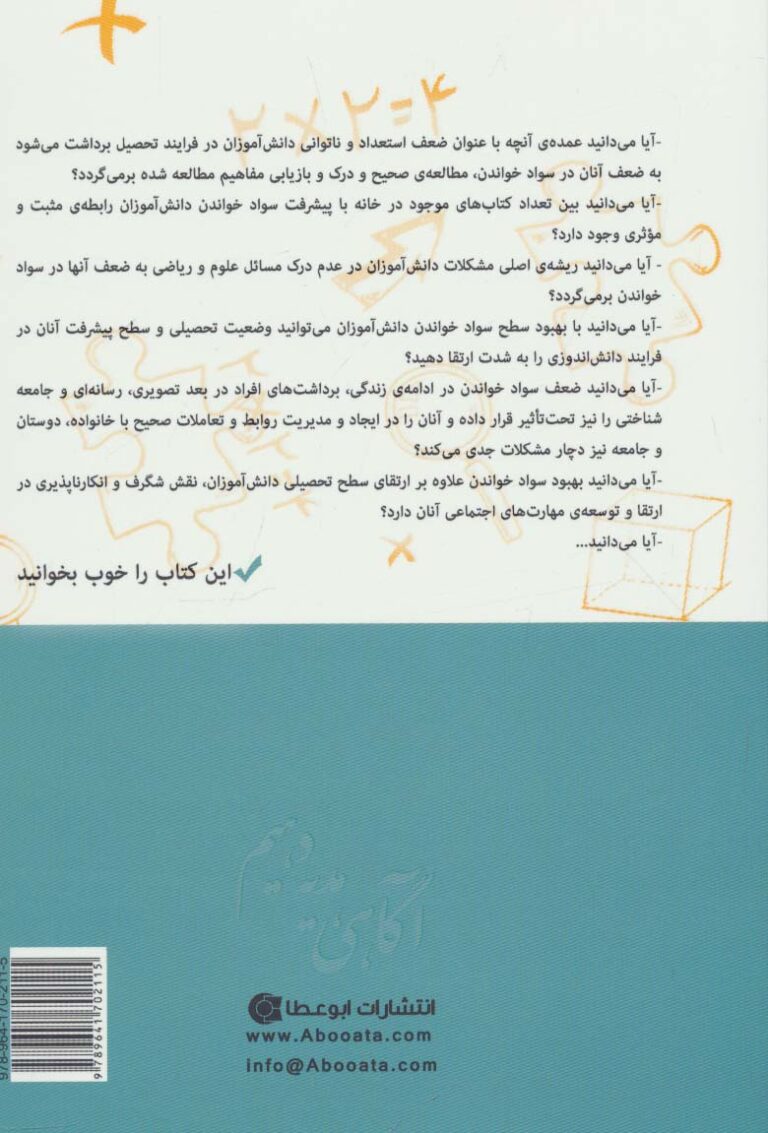 ۲×۲=۴
-آیا می‌دانید عمده‌ی آنچه با عنوان ضعف استعداد و ناتوانی دانش‌آموزان در فرایند تحصیل برداشت می‌شود
به ضعف آنان در سواد خواندن، مطالعه‌ی صحیح و درک و بازیابی مفاهیم مطالعه شده برمی‌گردد؟
-آیا می‌دانید بین تعداد کتاب‌های موجود در خانه با پیشرفت سواد خواندن دانش‌آموزان رابطه‌ی مثبت و
مؤثری وجود دارد؟
- آیا می‌دانید ریشه‌ی اصلی مشکلات دانش‌آموزان در عدم درک مسائل علوم و ریاضی به ضعف آنها در سواد
خواندن برمی‌گردد؟
-آیا می‌دانید با بهبود سطح سواد خواندن دانش‌آموزان می‌توانید وضعیت تحصیلی و سطح پیشرفت آنان در
فرایند دانش‌اندوزی را به شدت ارتقا دهید؟
-آیا می‌دانید ضعف سواد خواندن در ادامه‌ی زندگی، برداشت‌های افراد در بعد تصویری، رسانه‌ای و جامعه
شناختی را نیز تحت‌تأثیر قرار داده و آنان را در ایجاد و مدیریت روابط و تعاملات صحیح با خانواده، دوستان
و جامعه نیز دچار مشکلات جدی می‌کند؟
-آیا می‌دانید بهبود سواد خواندن علاوه بر ارتقای سطح تحصیلی دانش‌آموزان، نقش شگرف و انکارناپذیری در
ارتقا و توسعه‌ی مهارت‌های اجتماعی آنان دارد؟
-آیا می‌دانید...
این کتاب را خوب بخوانید
آگاهی هدیه دهیم
انتشارات ابوعطا
www.Abooata.com
info@Abooata.com
978-964-170-211-5
9789641702115